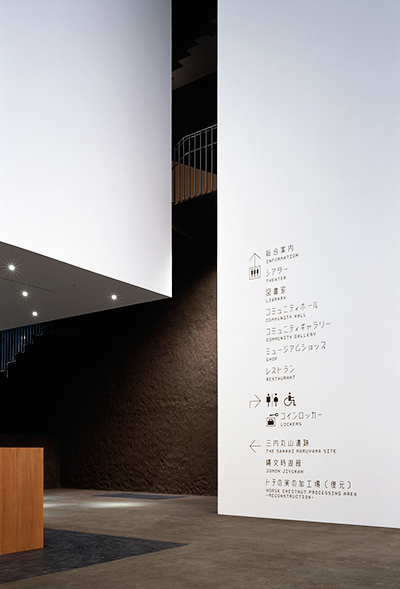 総合案内
INFORMATION
シアター
THEATER
図書室
LIBRARY
コミュニティホール
COMMUNITY HALL
コミュニティギャラリー
COMMUNITY GALLERY
ミュージアムショップ
SHOP
レストラン
RESTAURANT
コインロッカー
LOCKERS
三内丸山遺跡
THE SANNAI MARUYAMA SITE
縄文時遊館
JOMON JIYUKAN
トチの実の加工場(復元)
HORSE CHESTNUT PROCESSING AREA
-RECONSTRUCTION-